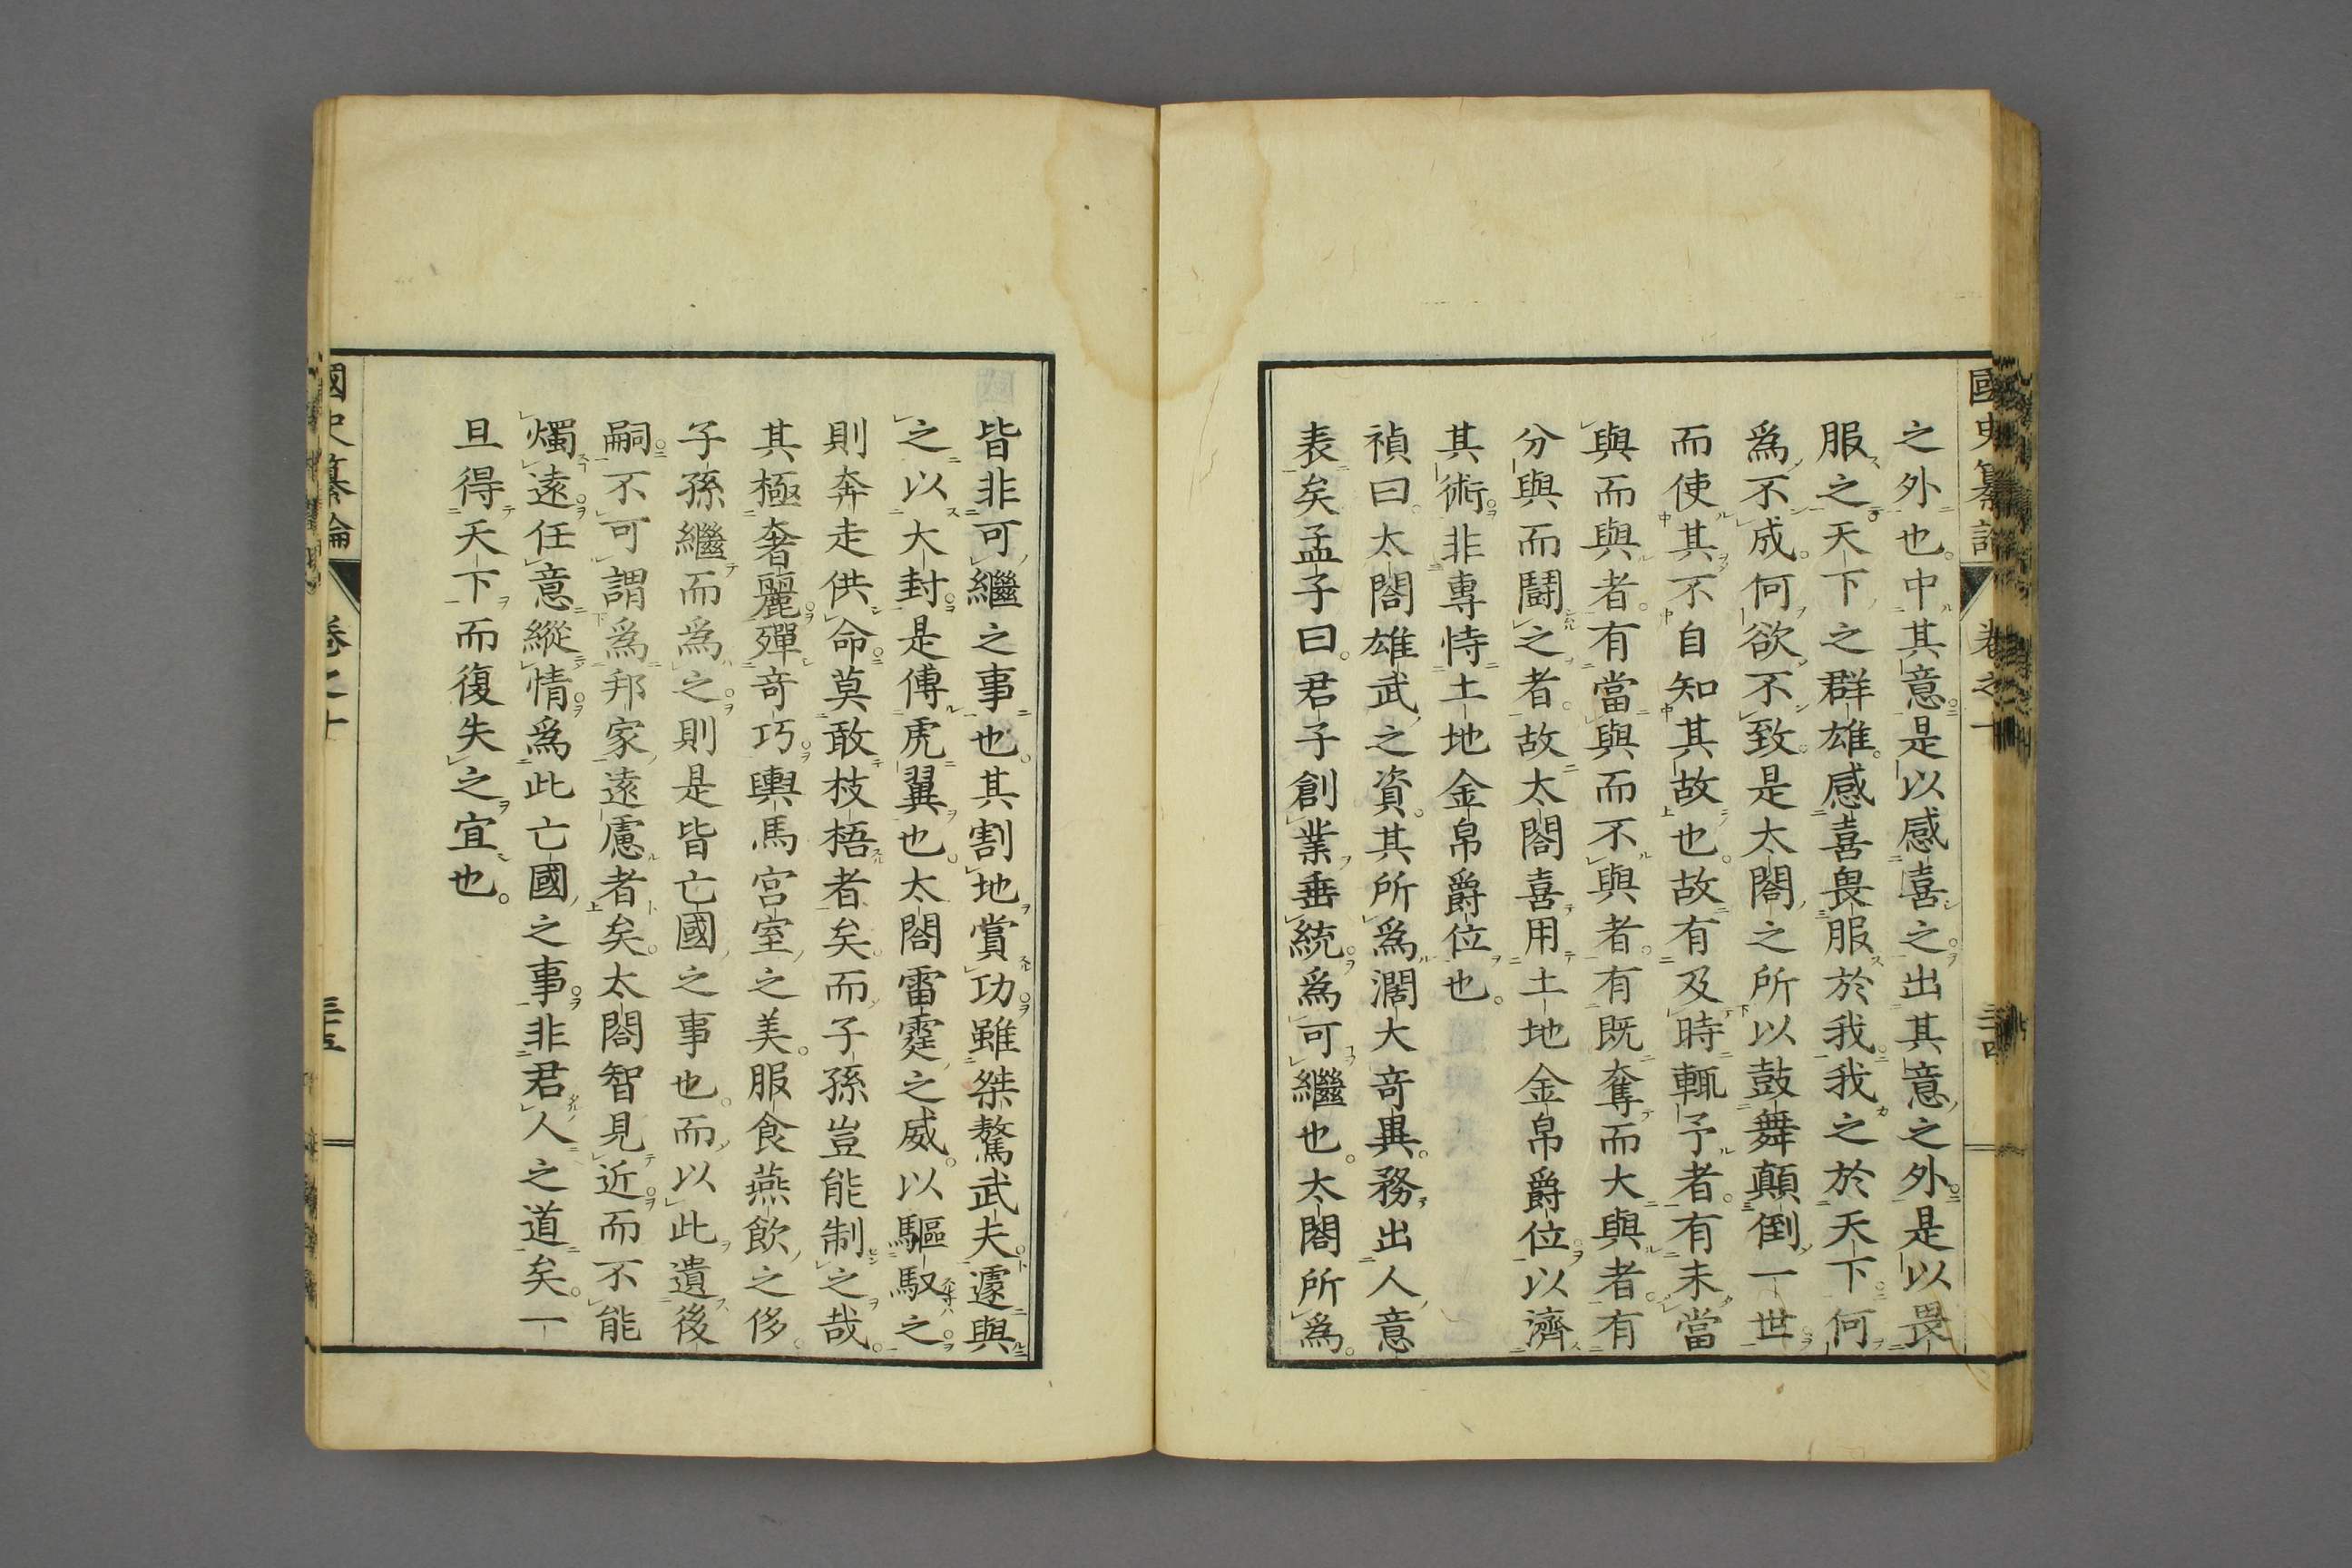 之外也。中其意是以感喜之。出其意之外是以畏
服之天下之群雄。感喜畏服於我我之於天下。何
爲不成。何欲不致。是太閤之所以鼓舞顛倒一世
而使其不自知其故也。故有及時輒予者。有未當
與而與者。有當與而不與者。有既奪而大與者。有
分與而鬪之者。故太閤喜用土地金帛爵位。以濟
其術。非專恃土地金帛爵位也。
禎曰。太閤雄武之資。其所爲濶大奇異。務出人意
表矣孟子曰。君子創業垂統。爲可繼也。太閤所爲。
皆非可繼之事也。其割地賞功。雖桀驁武夫。遽與
之以大封。是傅虎翼也。太閤雷霆之威。以驅馭之。
則奔走供命。莫敢枝梧者矣。而子孫豈能制之哉。
其極奢麗。殫奇巧。輿馬宮室之美。服食燕飲之侈。
子孫繼而爲之。則是皆亡國之事也。而以此遺後
嗣。不可謂爲邦家遠慮者矣。太閤智見近。而不能
燭遠。任意縱情。爲此亡國之事。非君人之道矣。一
旦得天下而復失之宜也。
國史纂論
卷之十
三十五